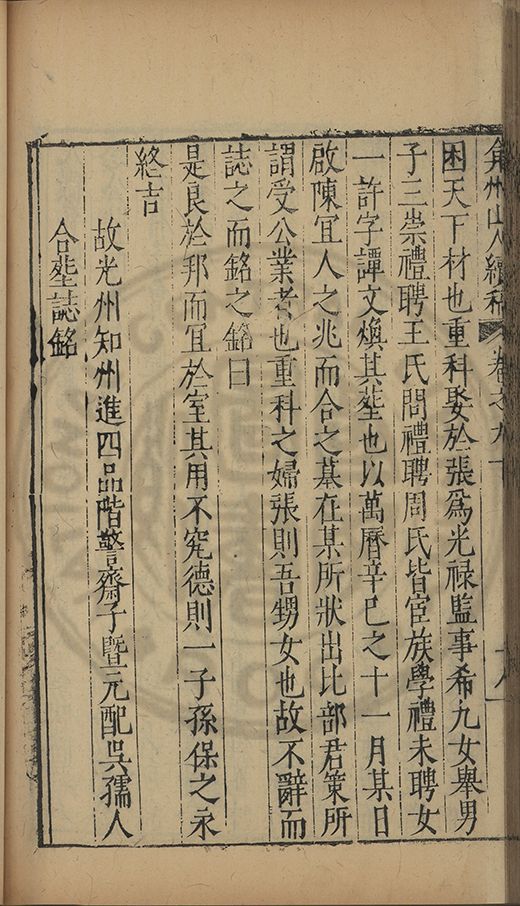 弇州山人續稿 卷之九十 十八
困天下材也重科娶於張爲光禄監事希九女舉男
子三崇禮聘王氏問禮聘周氏皆宦族學禮未聘女
一許字譚文煥其塟也以萬曆辛巳之十一月某日
啟陳宜人之兆而合之墓在某所狀出比部君策所
謂受公業者也重科之婦張則吾甥女也故不辭而
誌之而銘之銘曰
是良於邦而宜於室其用不究德則一子孫保之永
終吉
故光州知州進四品階警齋子暨元配吳孺人
合塟誌銘